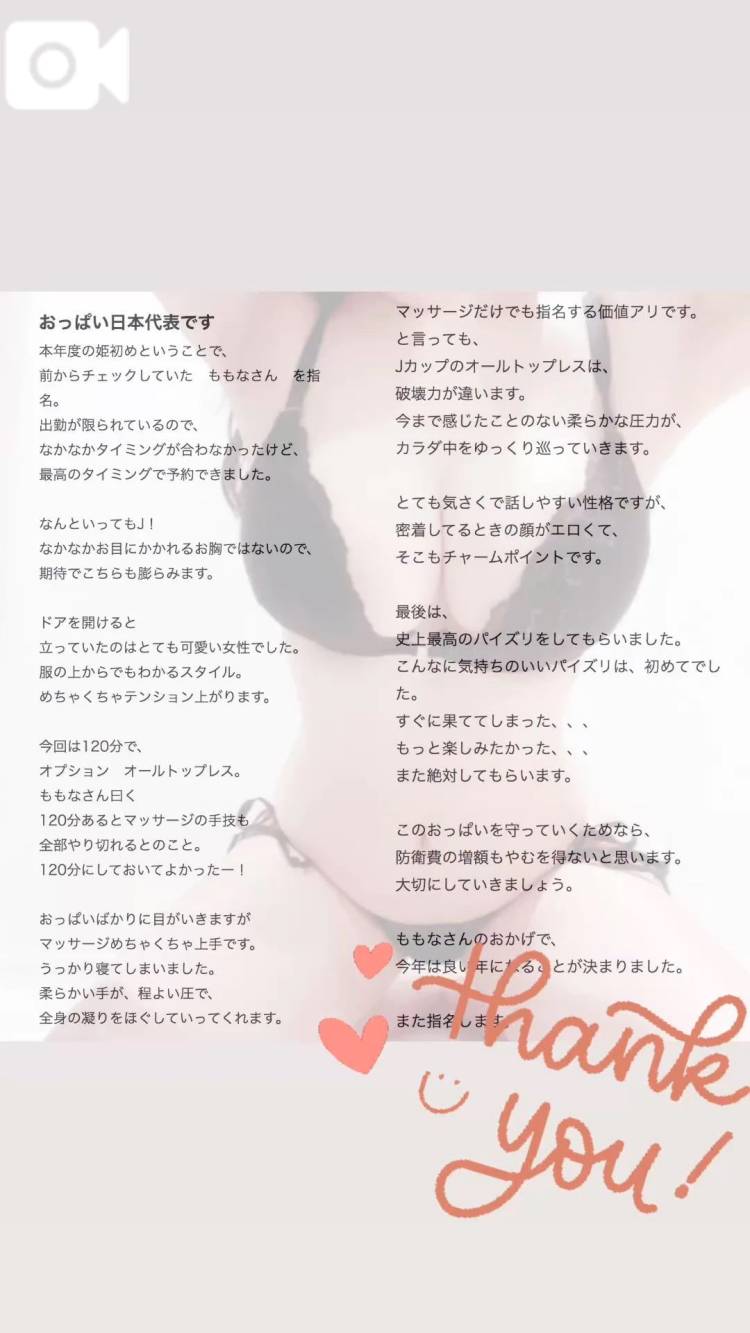 おっぱい日本代表です
本年度の姫初めということで、
前からチェックしていた　ももなさん　を指
名。
出勤が限られているので、
なかなかタイミングが合わなかったけど、
最高のタイミングで予約できました。
なんといってもJ！
なかなかお目にかかれるお胸ではないので、
期待でこちらも膨らみます。
ドアを開けると
立っていたのはとても可愛い女性でした。
服の上からでもわかるスタイル。
めちゃくちゃテンション上がります。
今回は120分で、
オプション　オールトップレス。
ももなさん曰く
120分あるとマッサージの手技も
全部やり切れるとのこと。
120分にしておいてよかったー！
おっぱいばかりに目がいきますが
マッサージめちゃくちゃ上手です。
うっかり寝てしまいました。
柔らかい手が、程よい圧で、
全身の凝りをほぐしていってくれます。
マッサージだけでも指名する価値アリです。
と言っても、
Jカップのオールトップレスは、
破壊力が違います。
今まで感じたことのない柔らかな圧力が、
カラダ中をゆっくり巡っていきます。
とても気さくで話しやすい性格ですが、
密着してるときの顔がエロくて、
そこもチャームポイントです。
最後は、
史上最高のパイズリをしてもらいました。
こんなに気持ちのいいパイズリは、初めてでし
た。
すぐに果ててしまった、、、
もっと楽しみたかった、、、
また絶対してもらいます。
このおっぱいを守っていくためなら、
防衛費の増額もやむを得ないと思います。
大切にしていきましょう。
ももなさんのおかげで、
今年は良い年になることが決まりました。
また指名します。
thank
you!